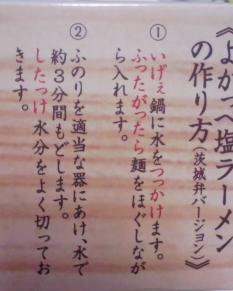 《よかっぺ塩ラーメン
の作り方(茨城弁バージョン)》
① いげぇ鍋に水をつっかけます。
ふったがったら麺をほぐしなが
ら入れます。
② ふのりを適当な器にあけ、水で
約3分間もどします。
したっけ水分をよく切ってお
きます。